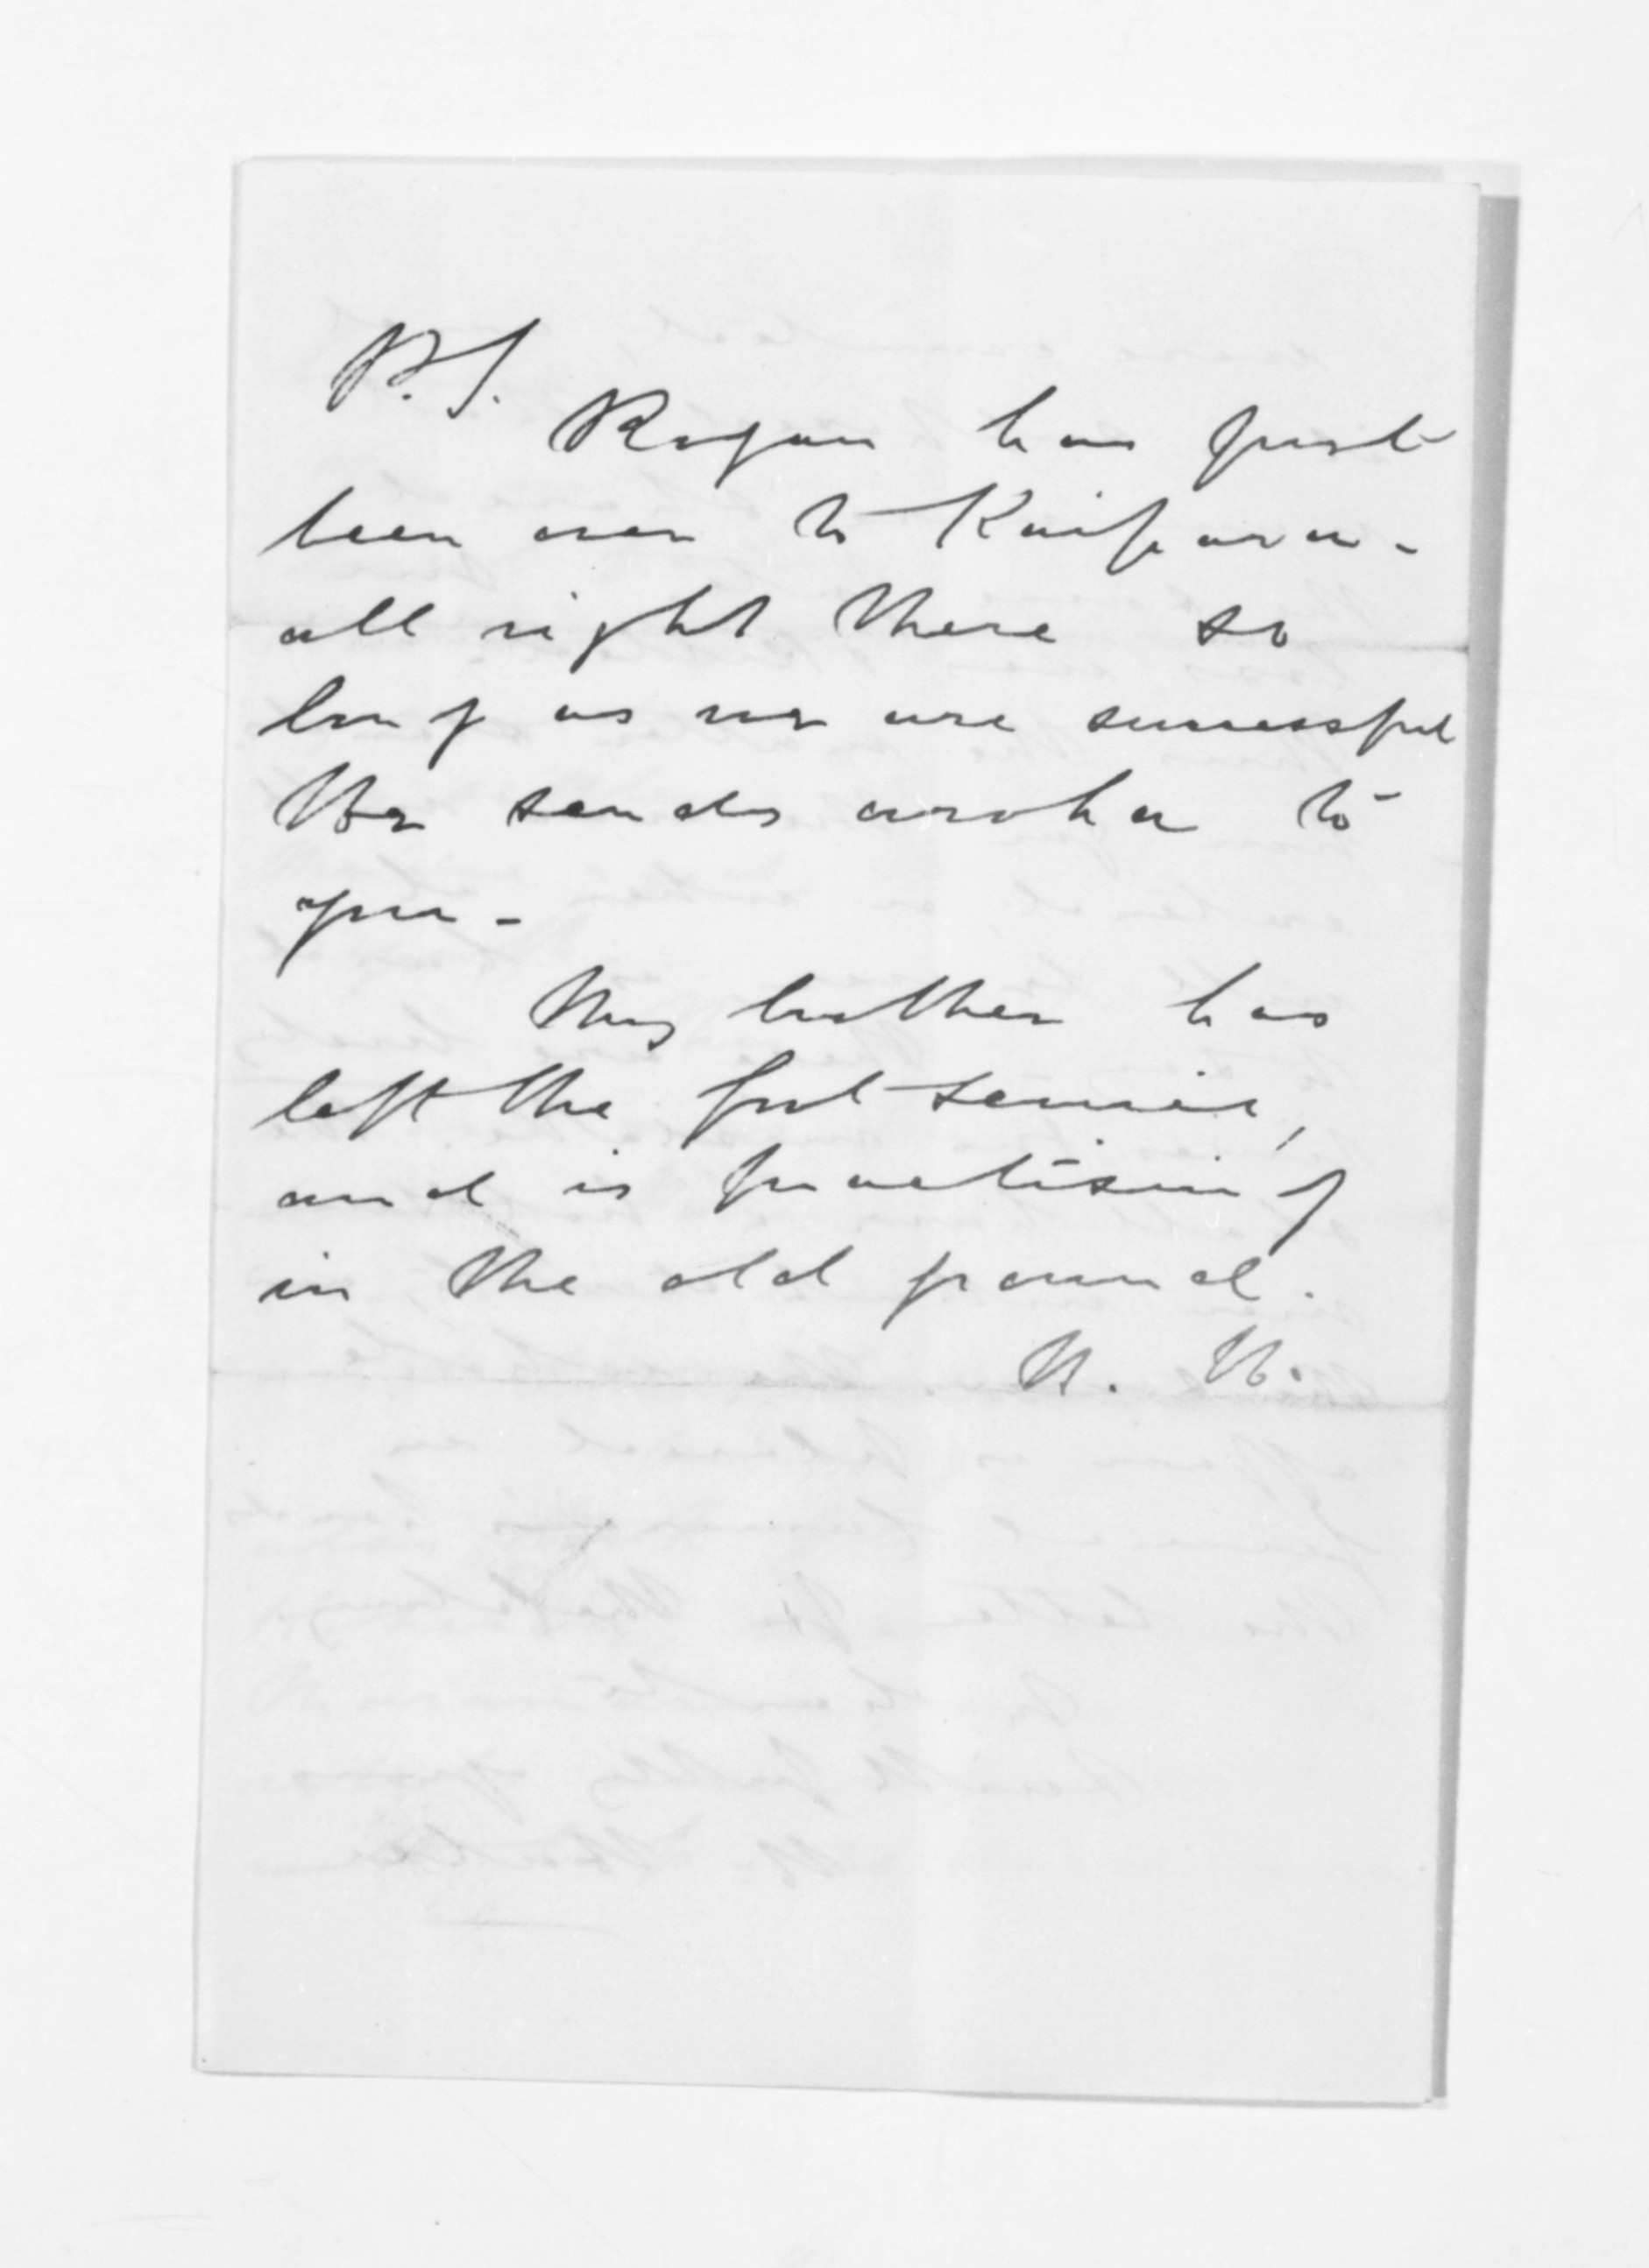 P.S.
Rogan has just
been over to Kaipara -
all right there so
long as we are successful
He sends aroha to
you -
My brother has
left the Govt service,
and is practising
in the old ground.
H. H.